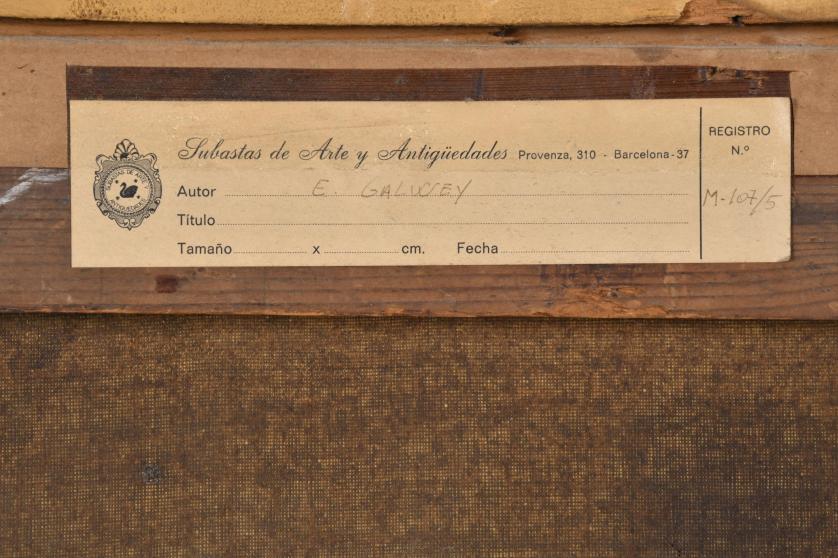 Subastas de Arte y Antigüedades Provenza, 310 - Barcelona-37
Autor E. GALWEY
Título
Tamaño x cm. Fecha
REGISTRO
N.º
M-107/5
SUBASTAS DE ARTE Y
ANTIGUEDADES